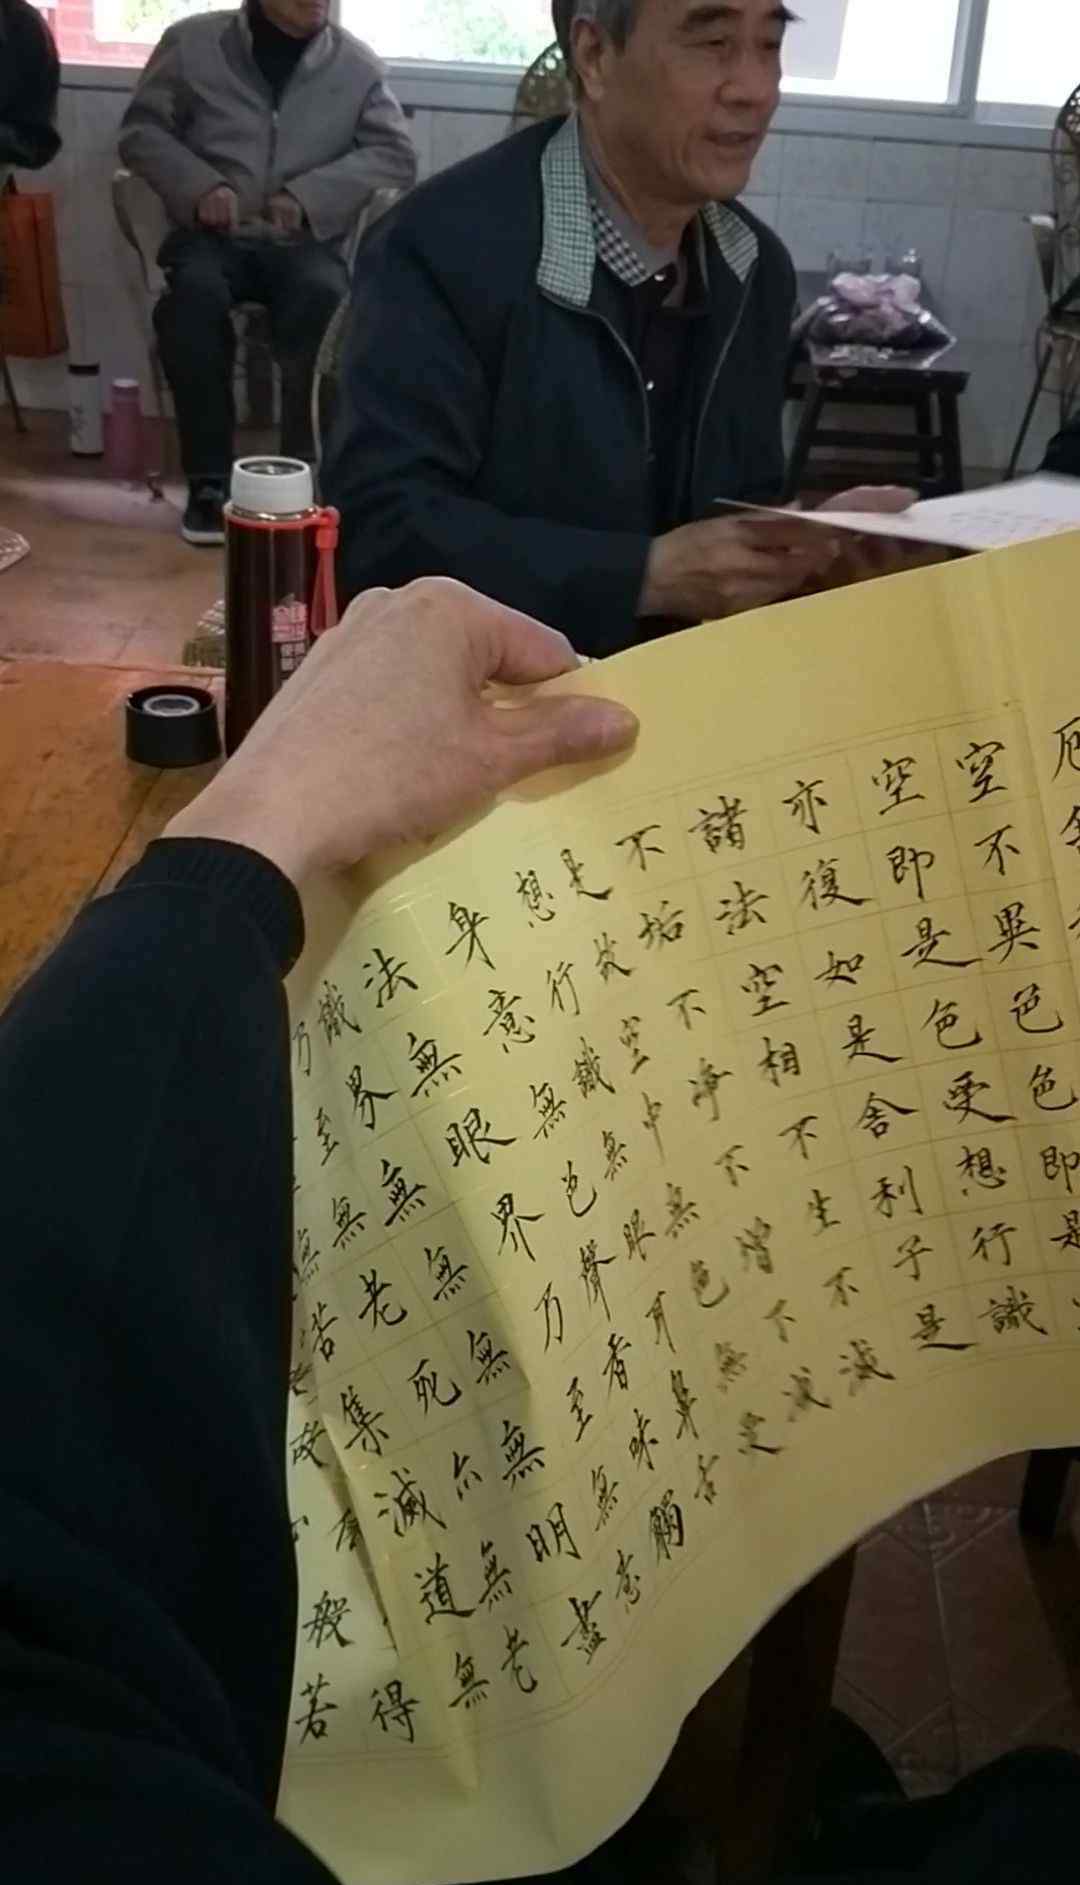 厄
空不異色色即是
空即是色受想行識
亦復如是舍利子是
諸法空相不生不滅
不垢不淨不增不減
是故空中無色無
想行識無眼耳鼻舌
身意無色聲香味觸
法無眼界乃至無意
識界無無無無明盡
乃至無老死亦無老
無苦集滅道無
得
故
般若